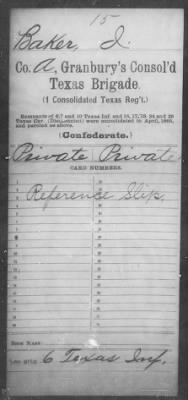 15
Baker, J.
Co. A, Granbury's Consol'd
Texas Brigade.
(1 Consolidated Texas Reg't.)
Remnants of 6, 7 and 10 Texas Inf. and 15, 17, 18, 24 and 25
Texas Cav. (Dismounted) were consolidated in April, 1865,
and paroled as above.
(Confederate.)
Private Private
CARD NUMBERS.
1
Reference Slip.
Book Mark:
See also 6 Texas Inf.